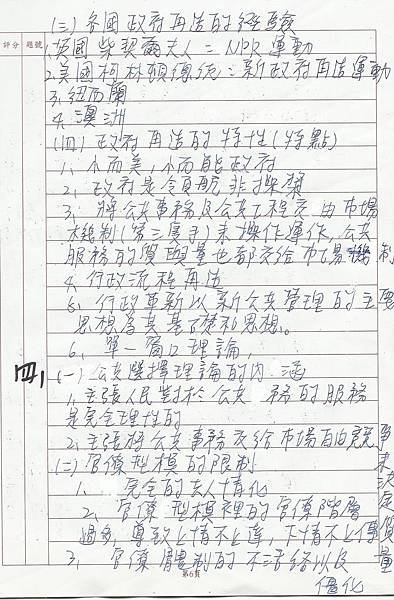 評分 題號
(三)各國政府再造的經驗
1.英國柴契爾夫人=NPR運動
2.美國柯林頓總統=新政府再造運動
3.紐西蘭
4.澳洲
(四)政府再造的特性(特點)
1、小而美,小而能政府
2、政府是領航非操槳
3、將公共事務及公共工程交由市場
機制(第三隻手)來操作運作,公共
服務的質與量也都交給市場機制
4、行政流程再造
5、行政革新以新公共管理的主要
思想為其基礎和思想。
6、單一窗口理論,
四、(一)公共選擇理論的內涵
1、主張人民對於公共 務的服務
是完全理性的
2、主張將公共事務交給市場自由競爭來決定價質量
(二)官僚型模的限制
1、完全的去人情化
2、官僚型模裡的官僚階層
過多,導致上情不上達,下情不上傳
3、官僚體制的不活絡以及
僵化
第6頁